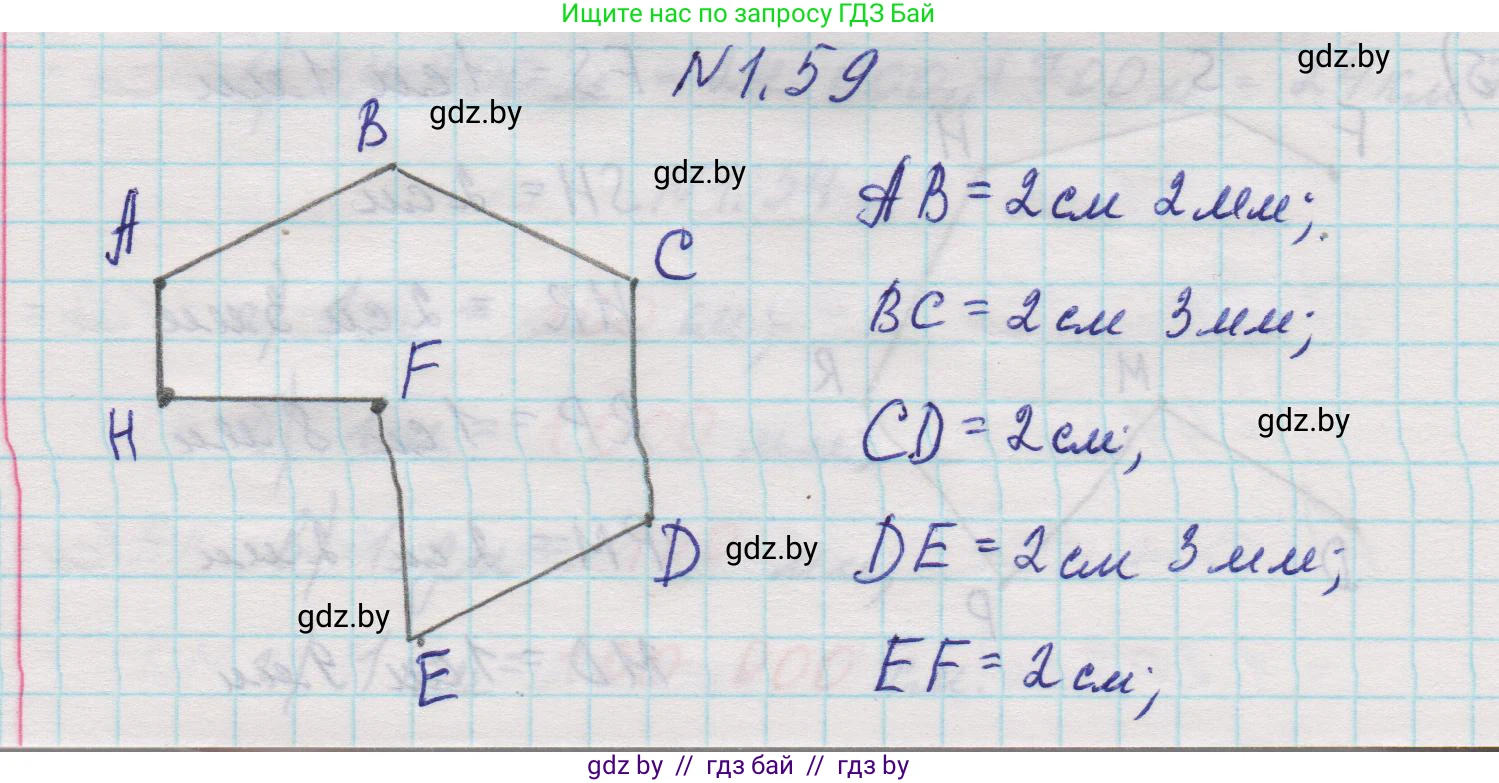 Ищите нас по запросу ГДЗ Бай
N 1.59
gdz.by
B
gdz.by
gdz.by
A
C
AB = 2 см 2 мм;
BC = 2 см 3 мм;
F
H
CD = 2 см;
gdz.by
D
gdz.by
DE = 2 см 3 мм;
gdz.by
E
EF = 2 см;
gdz by // гдз бай // гдз by